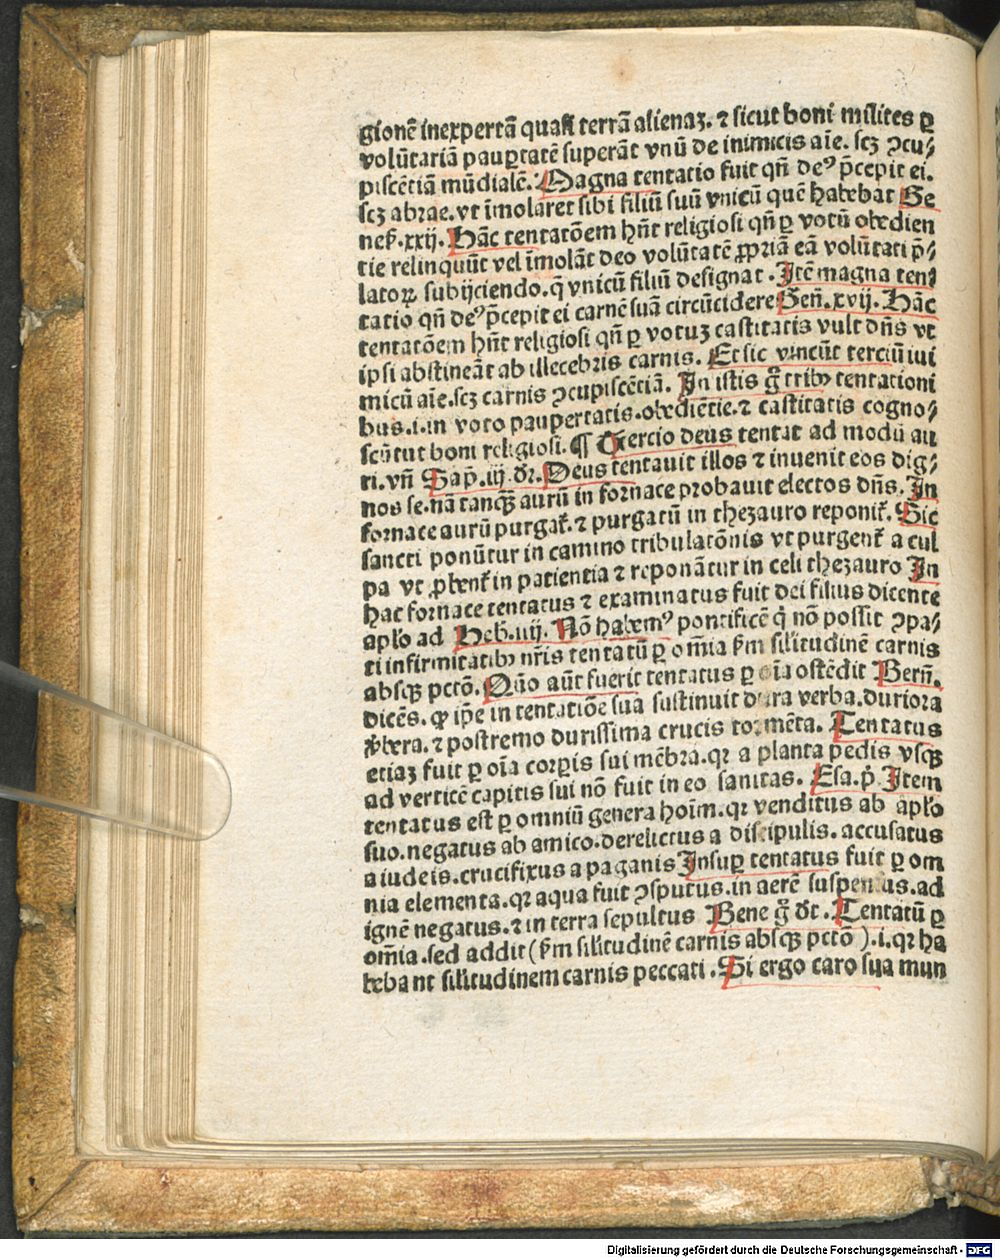 gionē inexpertā quasi terrā alienaꝫ. ⁊ sicut boni milites ꝑ
volūtariā pauꝑtatē superāt vnū de inimicis aīe. scꝫ ꝯcu⸗
piscētiā mūdialē. Magna tentatio fuit qn̄ deꝰ p̄cepit ei.
scꝫ abrae. vt īmolaret sibi filiū suū vnicū quē habebat Ge
neſ. xxij. Hāc tentatōem hn̄t religiosi qn̄ ꝑ votū obedien
tie relinquūt vel īmolāt deo volūtatē ꝓpriā eā volūtati p̄⸗
latoꝝ subijciendo. q̄ vnicū filiū designat. Itē magna ten⸗
tatio qn̄ deꝰ p̄cepit ei carnē suā circūcidere Gen̄. xvij. Hāc
tentatōem hn̄t religiosi qn̄ ꝑ votuꝫ castitatis vult dn̄s vt
ipsi abstineāt ab illecebris carnis. Et sic vincūt terciū ini
micū aīe. scꝫ carnis ꝯcupiscētiā. In istis g̊ tribꝰ tentationi
bus. i. in voto paupertatis. obediētie. ⁊ castitatis cogno⸗
scūtut boni religiosi. ¶ Tercio deus tentat ad modū au
ri. vn̄ Sap̄. iij. dr̄. Deus tentauit illos ⁊ inuenit eos dig⸗
nos se. nā tanꝙ̄ aurū in fornace probauit electos dn̄s. In
fornace aurū purgat̄. ⁊ purgatū in thezauro reponit̄. Sic
sancti ponūtur in camino tribulatōnis vt purgent̄ a cul
pa vt ꝓbent̄ in patientia ⁊ reponātur in celi thezauro In
hac fornace tentatus ⁊ examinatus fuit dei filius dicente
apl̄o ad Heb. iiij. Nō habemꝰ pontificē q̇ nō possit ꝯpa⸗
ti infirmitatibꝰ nr̄is tentatū ꝑ om̄ia ẜm sil̄itudinē carnis
absqꝫ pctō. Quō aūt fuerit tentatus ꝑ oīa ostēdit Bern̄.
dicēs. ꝙ ip̄e in tentatiōe sua sustinuit dura verba. duriora
v̄bera. ⁊ postremo durissima crucis tormēta. Tentatus
etiaꝫ fuit ꝑ oīa corꝑis sui mēbra. qꝛ a planta pedis vsqꝫ
ad verticē capitis sui nō fuit in eo sanitas. Esa. p̊. Item
tentatus est ꝑ omniū genera hoīm. qꝛ venditus ab apl̄o
suo. negatus ab amico. derelictus a discipulis. accusatus
a iudeis. crucifixus a paganis Insuꝑ tentatus fuit ꝑ om
nia elementa. qꝛ aqua fuit ꝯsputus. in aerē suspensus. ad
ignē negatus. ⁊ in terra sepultus Bene g̊ dr̄t. Tentatū ꝑ
om̄ia. sed addit (ẜm sil̄itudinē carnis absqꝫ pctō). i. qꝛ ha
beba nt sil̄itudinem carnis peccati. Si ergo caro sua mun
Digitalisierung gefördert durch die Deutsche Forschungsgemeinschaft - DFG